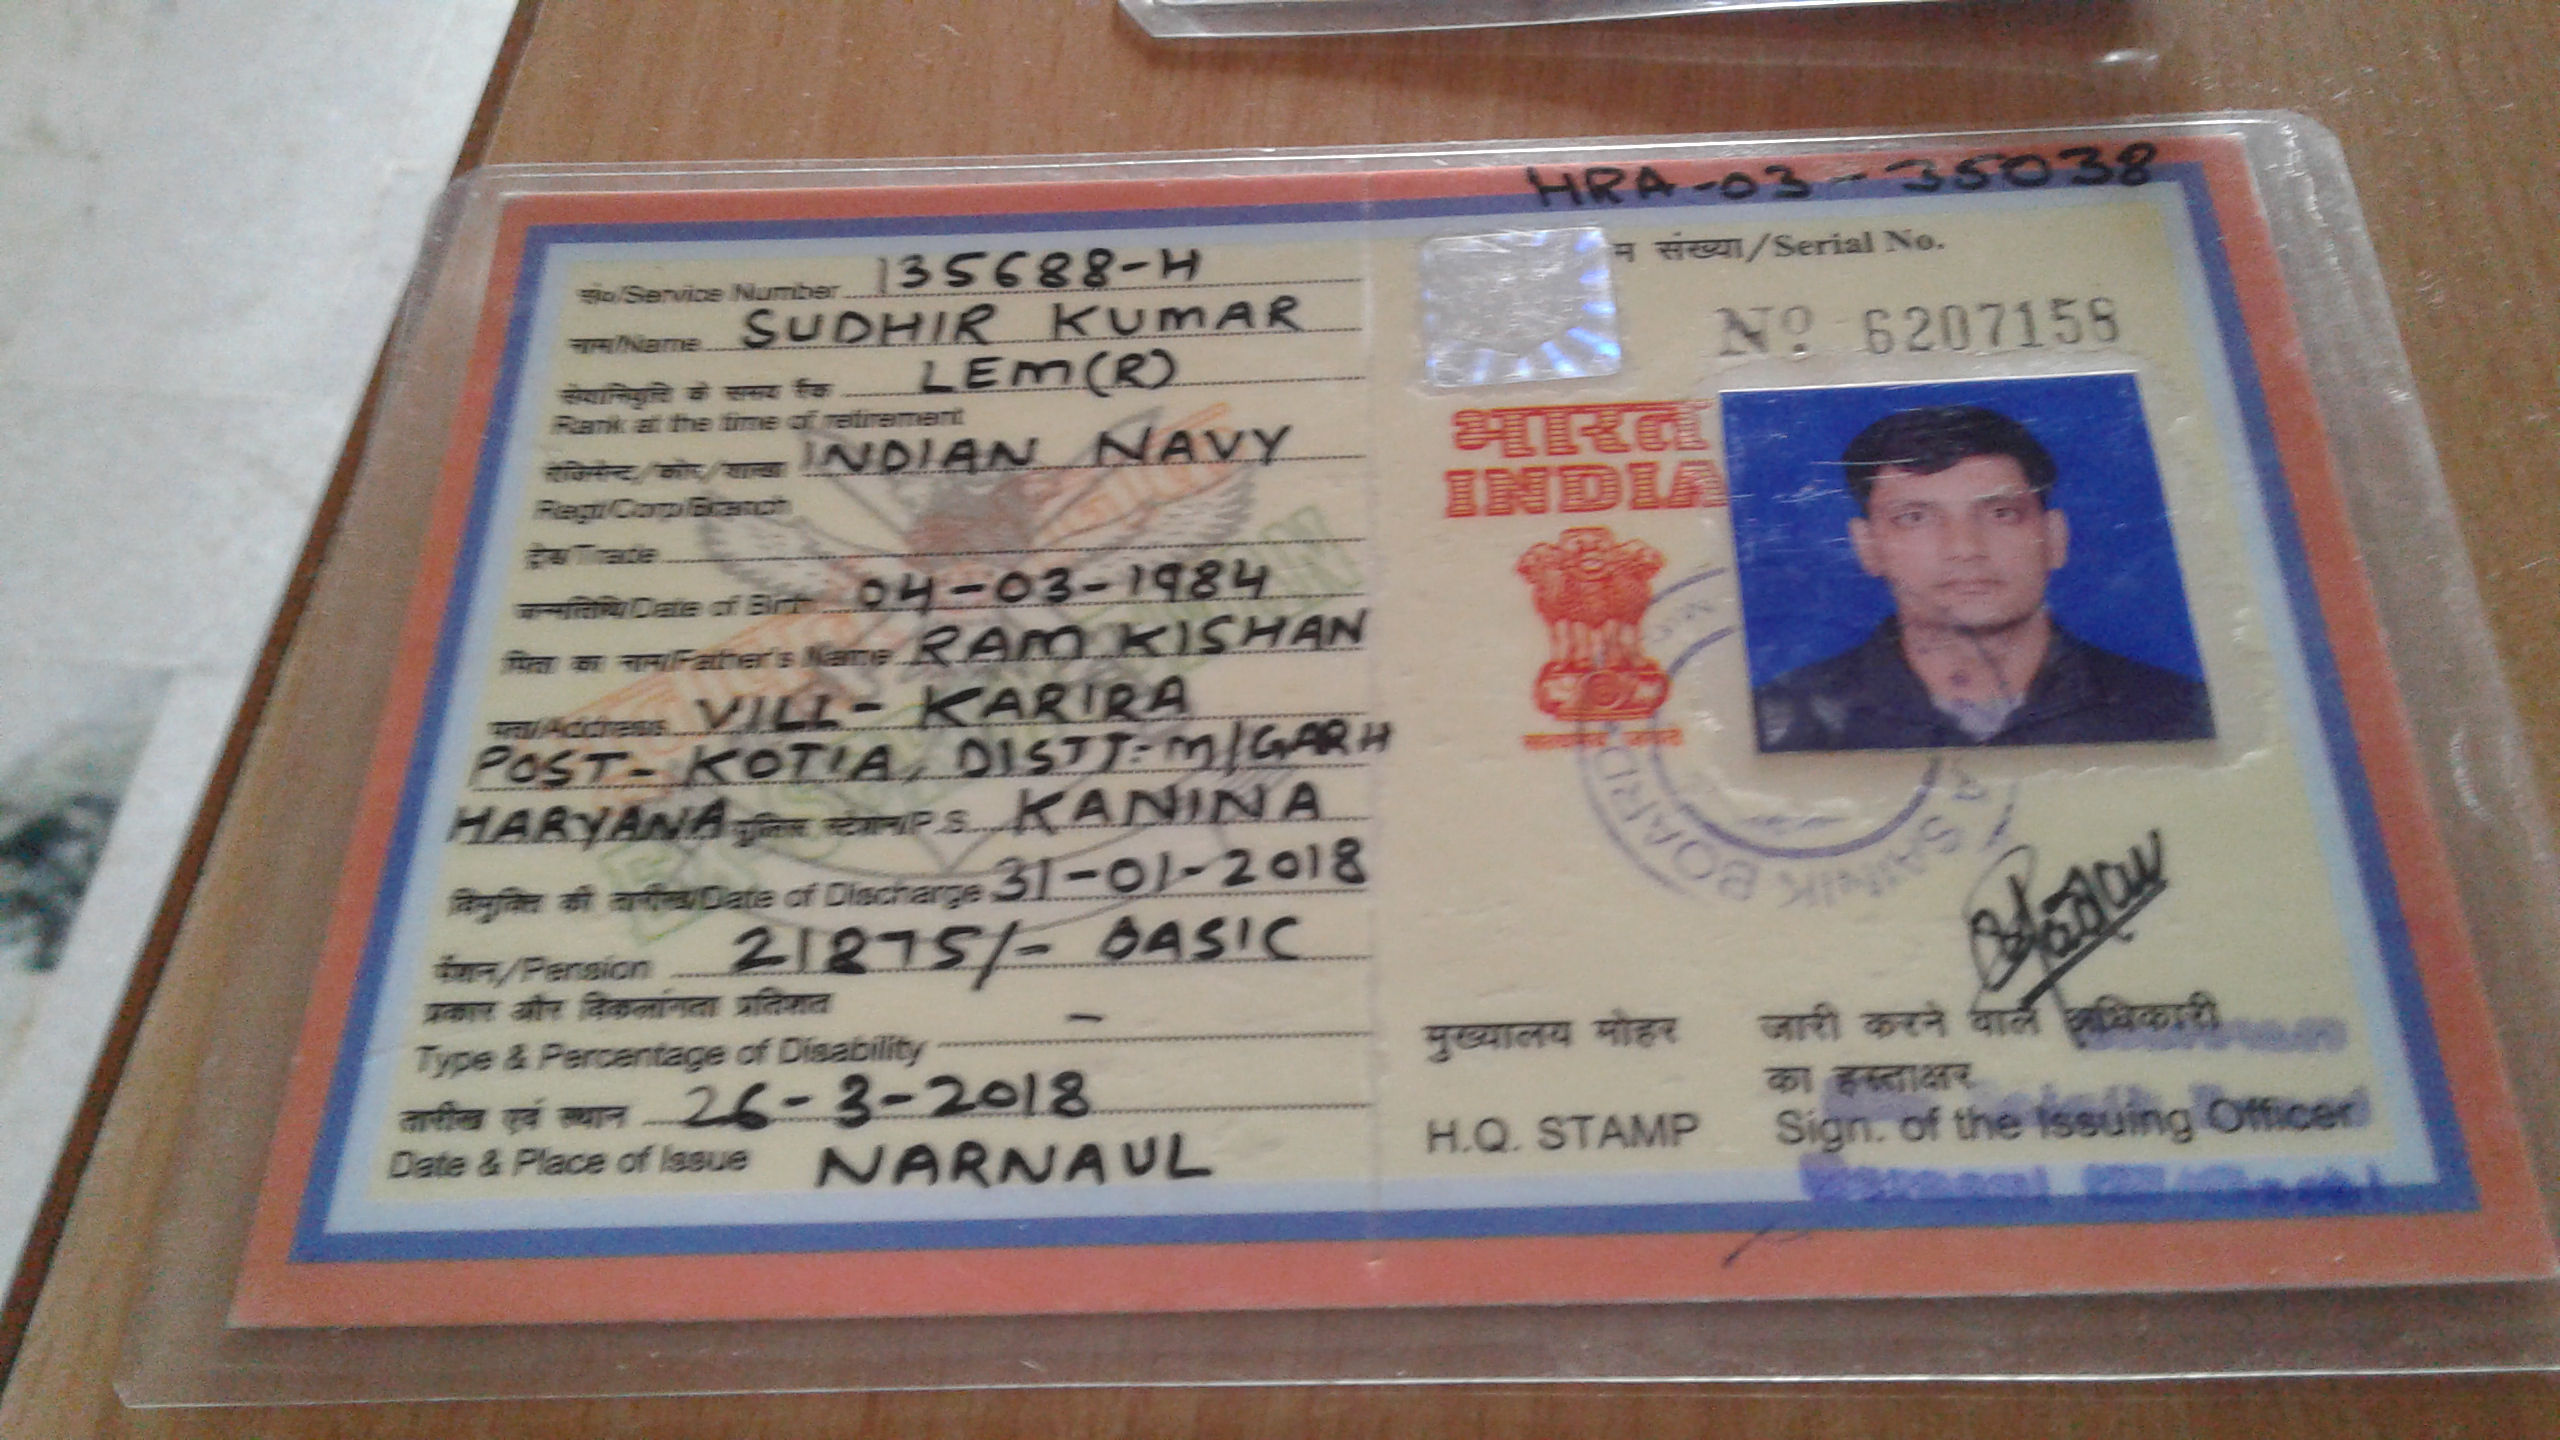 सं०/Service Number 135688-H
नाम/Name SUDHIR KUMAR
सेवानिवृत्ति के समय रैंक LEM(R)
Rank at the time of retirement
रेजिमेन्ट/कोर/शाखा INDIAN NAVY
Regt/Corp/Branch
ट्रेड/Trade
जन्मतिथि/Date of Birth 04-03-1984
पिता का नाम/Father's Name RAM KISHAN
पता/Address VILL- KARIRA
POST- KOTIA, DISTT:- M/GARH
HARYANA पुलिस स्टेशन/P.S. KANINA
विमुक्ति की तारीख/Date of Discharge 31-01-2018
पेंशन/Pension 21875/- BASIC
प्रकार और विकलांगता प्रतिशत
Type & Percentage of Disability -
तारीख एवं स्थान 26-3-2018
Date & Place of Issue NARNAUL
HRA-03-35038
म संख्या/Serial No.
No 6207158
भारत
INDIA
सत्यमेव जयते
SAINIK BOARD
मुख्यालय मोहर
H.Q. STAMP
जारी करने वाले अधिकारी
का हस्ताक्षर
Sign. of the Issuing Officer